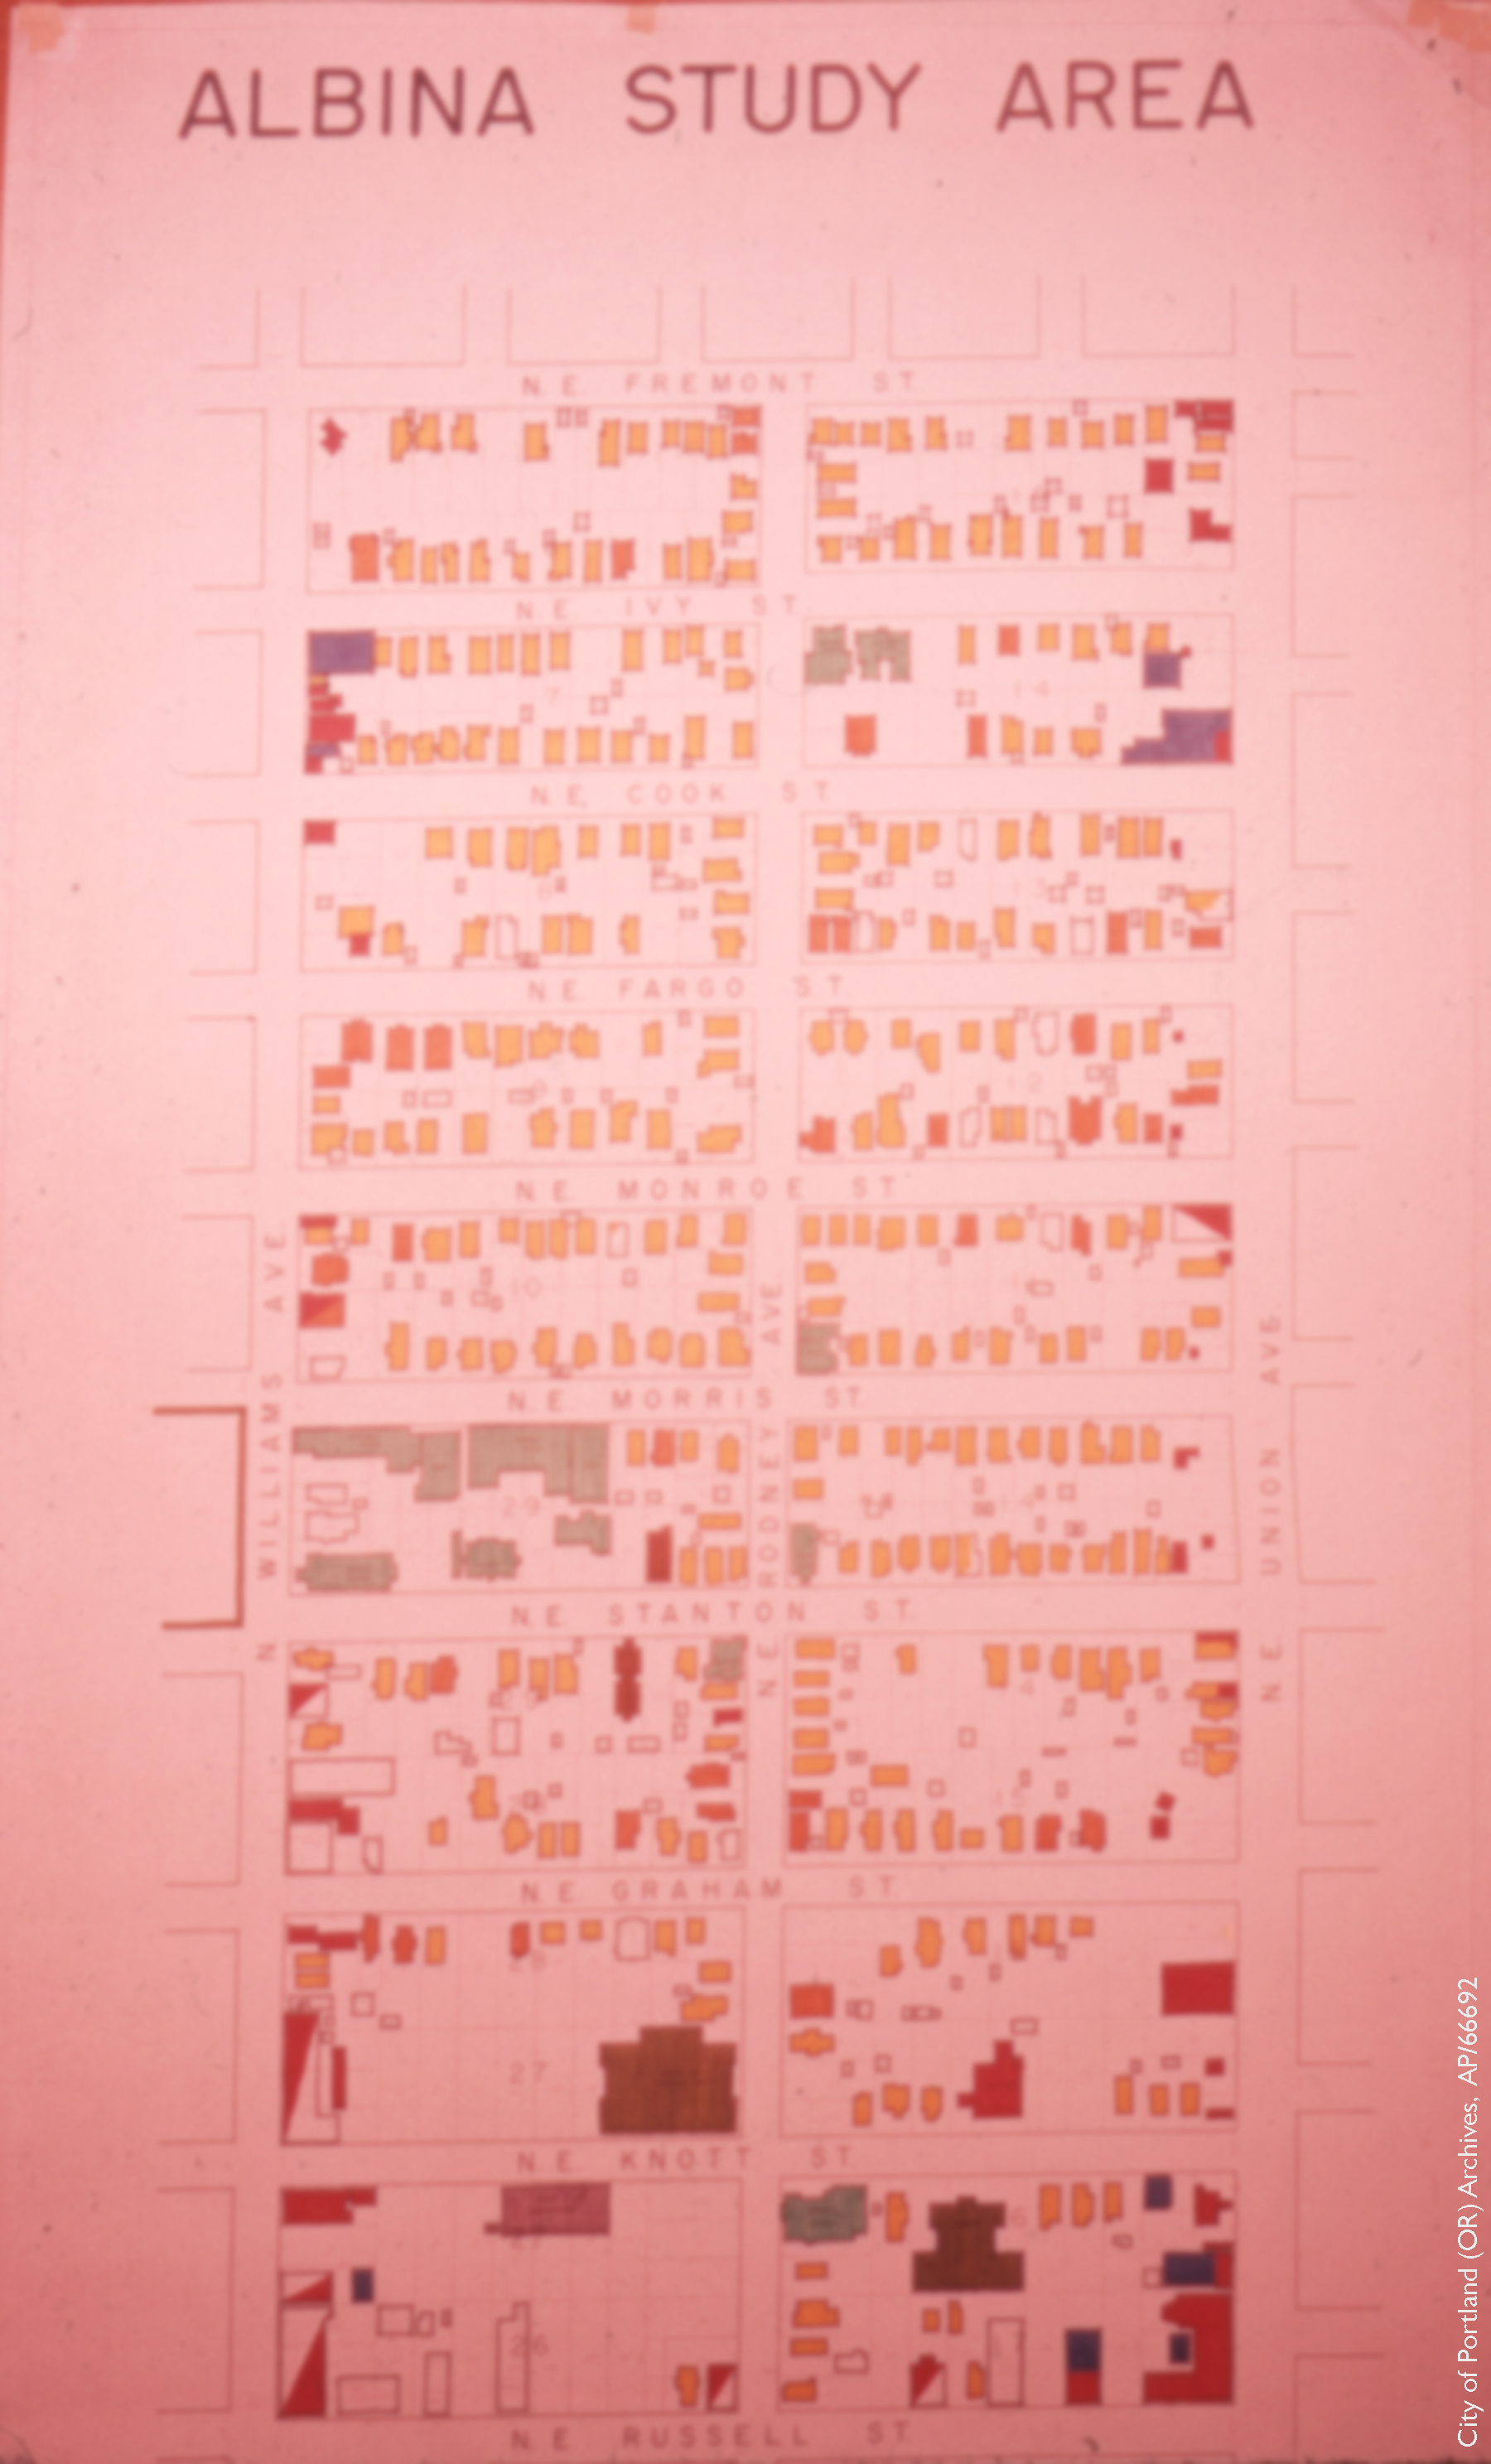 ALBINA STUDY AREA
N. E. FREMONT ST.
N. E. IVY ST.
7
14
N. E. COOK ST.
8
13
N. E. FARGO ST.
9
12
N. E. MONROE ST.
10
11
N. E. MORRIS ST.
29
14
N. E. STANTON ST.
N. E. GRAHAM ST.
28
27
N. E. KNOTT ST.
27
26
N. E. RUSSELL ST.
N WILLIAMS AVE
N E RODNEY AVE
N E UNION AVE
City of Portland (OR) Archives, AP/66692